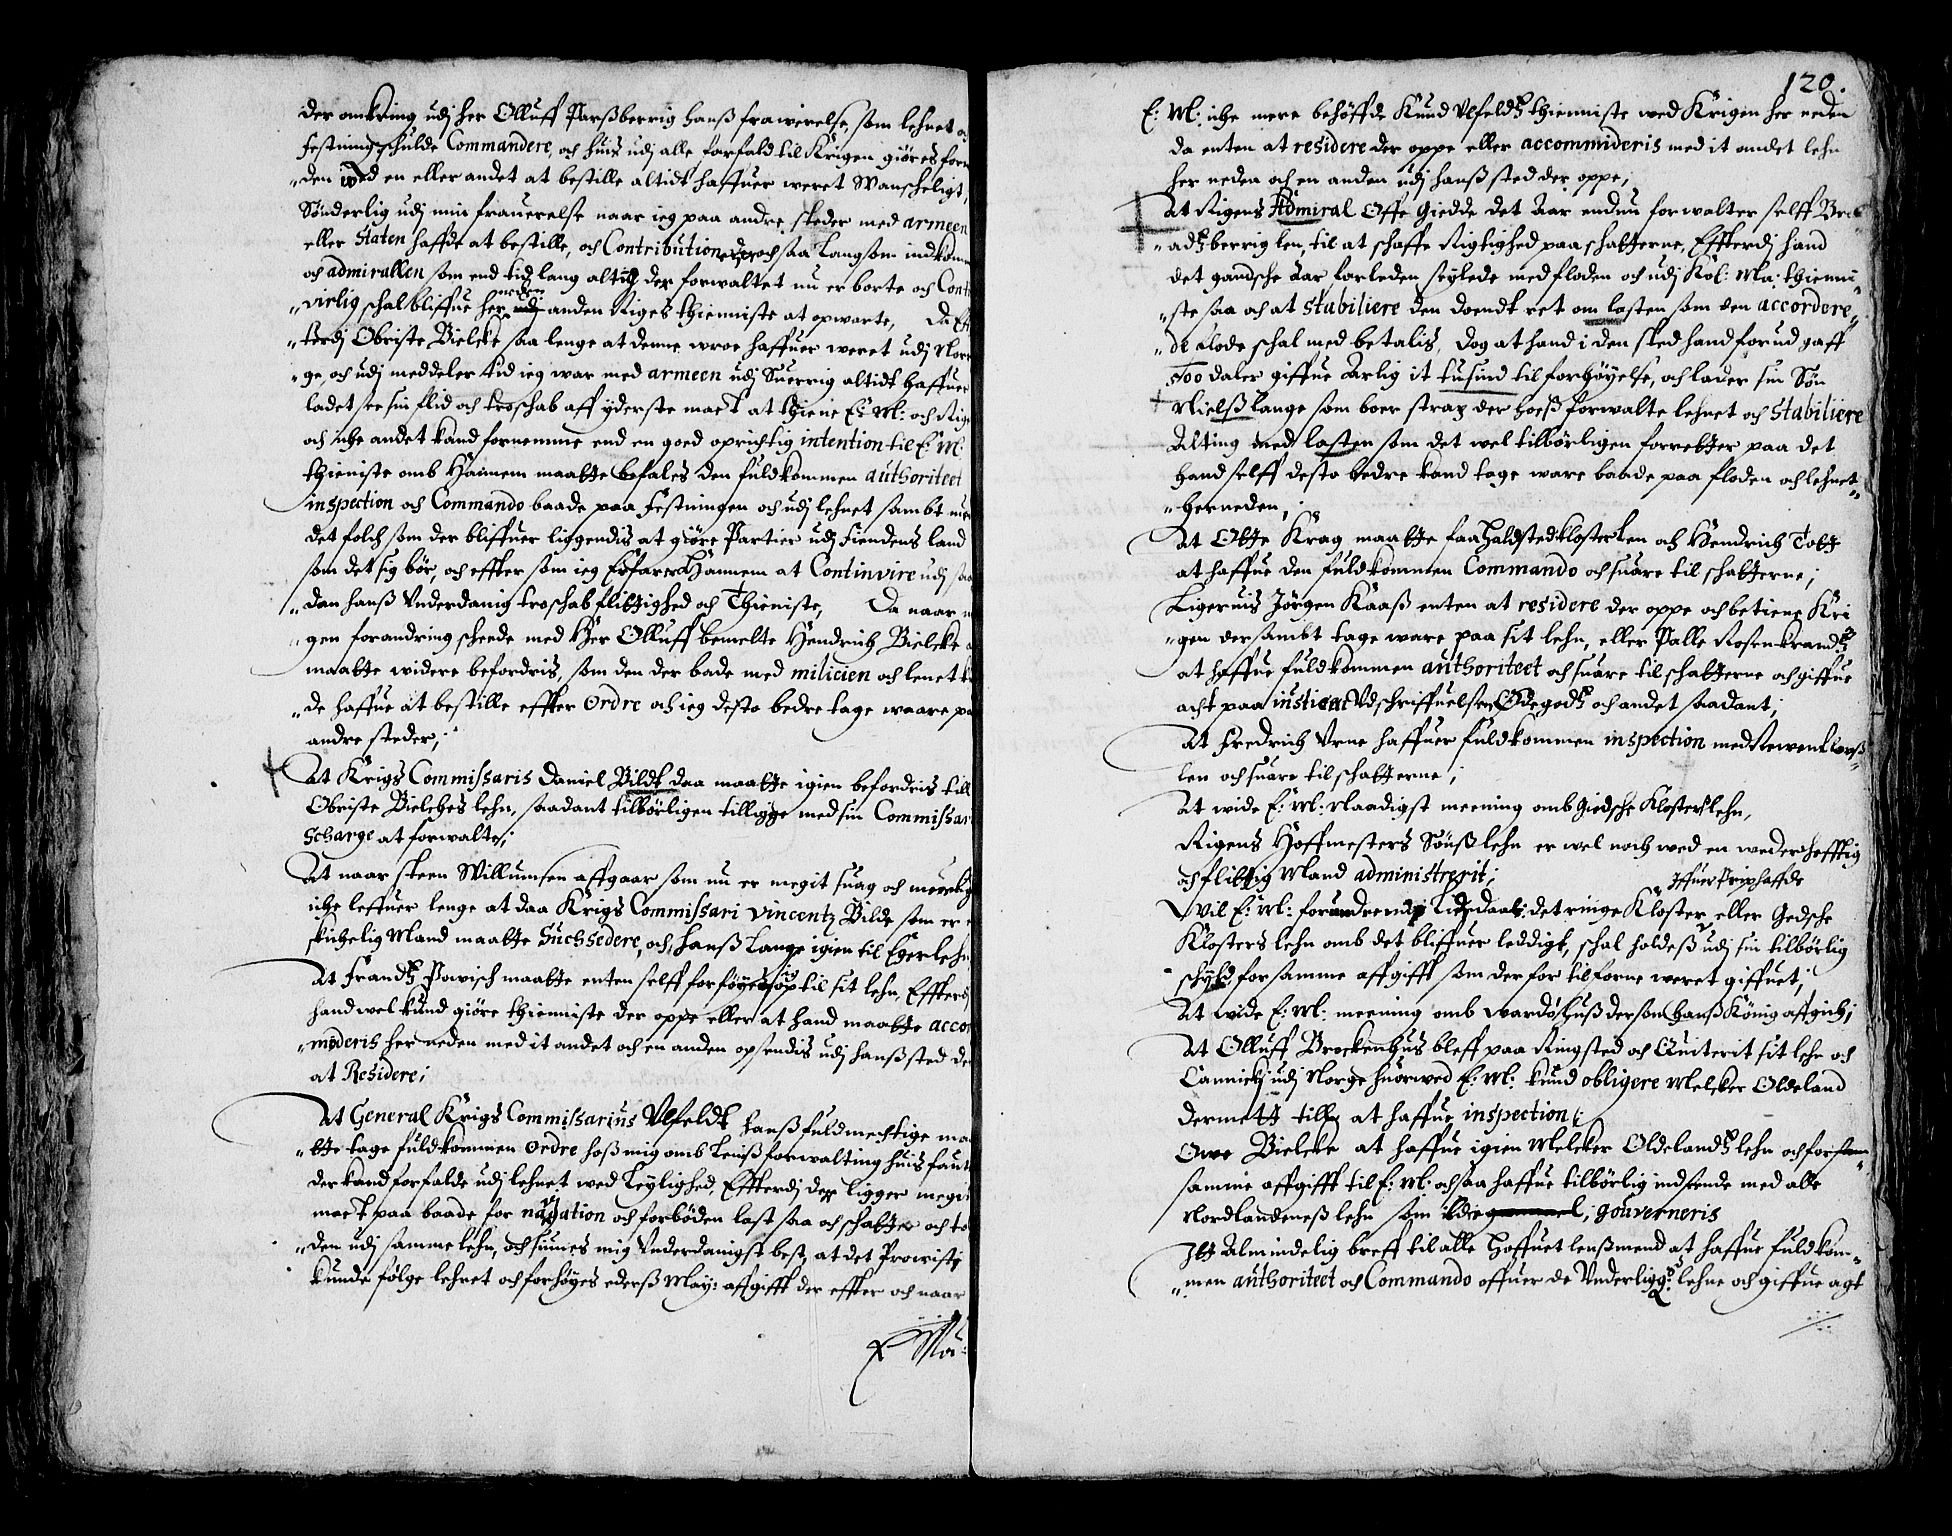 der omkring udj her Olluff Parßberrig hanß frawerelse, som lehnet o
festning schulde Commandere, och huis udj alle forfald til Krigen giöres for
den wed en eller andet at bestille altidt haffuer weret Wanscheligt,
Sönderlig udj min frauerelse naar ieg paa andre steder med armeen
eller staten haffde at bestille, och Contributionerne och saa langsom indkom
och admirallen som end tid lang altid der forwaltet nu er borte och Cont
virlig schal bliffue her neden anden Riges thienniste at opwarte, Da Eff
terdj Obriste Bielcke saa lenge at denne uroe haffuer weret udj Nor
ge, och udj meddeler tid ieg war med armeen udj Suerrig altidt haffuer
ladet see sin flid och troschab aff yderste mact at thiene E: M: och Rige
och iche andet kand fornemme end en goed oprichtig intention til E: M:
thieniste omb Hannem maatte befales den fuldkommen authoriteet
inspection och Commando baade paa festningen och udj lehnet sambt me
det folch som der bliffuer liggendis at giöre Partier udj fiendens land
som det sig bör, och effter som ieg Erfarer Hannem at Continvire udj saa
dan hanß Underdanig troschab flittighed och Thieniste, Da naar
gen forandring scheede med Her Olluff bemelte Hendrich Bielcke
maatte widere befordris, som den der bade med milicien och lenet
de haffue at bestille effter ordre och ieg desto bedre tage waare pa
andre steder;
At Krigs Commissaris Daniel Bildt daa maatte igien befordris till
Obriste Bielches lehn, saadant tilbörligen tilligge med sin Commissar
Scharge at forwalte;
At naar steen Willumsen affgaar som nu er megit suag och
iche leffuer lenge at daa Krigs Commissari Vincentz Bilde som er
skichelig Mand maatte Suchsedere, och hanß Lange igien til Egerlehn
At frandtz Powisch maatte enten selff forföye sig op til sit lehn, Effterdj
hand wel kund giöre thienniste der oppe eller at hand maatte accom
moderis her neden med it andet och en anden opsendis udj hanß sted der
at Residere;
At General Krigs Commissarius Ulfeldt hanß fuldmechtige ma
tte tage fuldkommen ordre hoß mig omb Lenß forwalting huis faut
der kand forfalde udj lehnet wed Leylighed, Effterdj der ligger megit
mact paa baade for nauigation och forböden last saa och schatter och to
den udj samme lehn, och siunes mig Underdanigst best, at det Prowistj
kunde fölge lehnet och forhöyes ederß May: affgifft der effter och naar
E May:
120.
E: M: iche mere behöffde Knud Ulfeldtz thienniste wed Krigen her neden
da enten at residere der oppe eller accommideris med it andet lehn
her neden och en anden udj hanß sted der oppe;
At Rigens Admiral Offe Giedde det Aar endnu forwalter selff Bra
adtzberrig len, til at schaffe Rigtighed paa schatterne, Effterdj hand
det gandsche Aar forleden seylede med floden och udj Kol: Ma: thienni
ste saa och at stabiliere den doendt ret om lasten som den accordere
de flode schal med betalis, dog at hand i den sted hand forud gaff
500 daler giffue Aarlig it tusind til forhöyelse, och lader sin Sön
Nielß Lange som boer strax der hoeß forwalte lehnet och Stabiliere
Alting med lasten som det wel tilbörligen forretter paa det
hand selff desto bedre kand tage ware baade paa floden och lehnet
herneden;
At Otte Krag maatte faa Halsted kloster len och Hendrich Tott
at haffue den fuldkommen Commando och suare til schatterne;
Ligeruis Jörgen Kaaß enten at residere der oppe och betiene Kri
gen der sambt tage ware paa sit lehn, eller Palle Rosenkrandtz
at haffue fuldkommen authoriteet och suare til schatterne och giffue
acht paa iusticen Udschriffuelsen Ödegodtz och andet saadant;
At Fredrich Urne haffuer fuldkommen inspection med
len och suare til schatterne;
At wide E: M: Naadigst meening omb Giedsche Klosters lehn,
Rigens Hoffmesters Sönß lehn er wel noch wed en wederhefftig
och flittig Mand administrerit;
Iffuer Prip haffde
Vil E: M: forundre det ringe Kloster eller Gedsche
Klosters lehn omb det bliffuer leddigt, schal holdeß udj sin tilbörlig
schyld for samme affgifft som der for tilforne weret giffuet;
At wide E: M: meening omb Wardöhuß dersom hanß König affgich;
At Olluff Brockenhus bleff paa Ringsted och Quiterit sit lehn och
Cannickj udj Norge huorwed E: M: kund obligere Melcker Oldeland
dermett till at haffue inspection;
Owe Bielcke at haffue igien Melcker Oldelandtz lehn och for
samme affgifft til E: M: och saa haffue tilbörlig indseende med alle
Nordlandeneß lehn som gouverneris
Itt Almindelig breff til alle Hoffuet lensmend at haffue fuldkom
men authoriteet och Commando offuer de Underligg: lehne och giffue agt